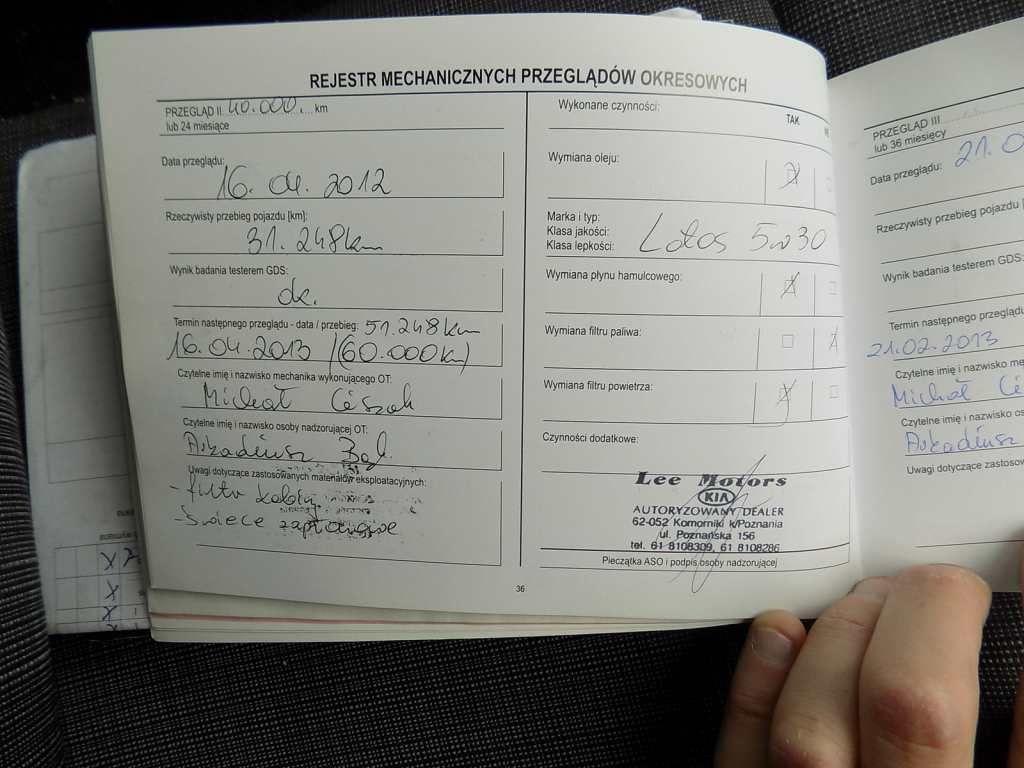 REJESTR MECHANICZNYCH PRZEGLĄDÓW OKRESOWYCH
PRZEGLĄD II 40.000.... km
lub 24 miesiące
Data przeglądu:
16. 04. 2012
Rzeczywisty przebieg pojazdu [km]:
31. 248km
Wynik badania testerem GDS:
ok.
Termin następnego przeglądu - data / przebieg: 51.248km
16.04.2013 /(60.000km)
Czytelne imię i nazwisko mechanika wykonującego OT:
Michał
Czytelne imię i nazwisko osoby nadzorującej OT:
Arkadiusz Bąl
Uwagi dotyczące zastosowanych materiałów eksploatacyjnych:
- filtr kabiny
- świece zapłonowe
Wykonane czynności:
TAK
Wymiana oleju:
Marka i typ:
Klasa jakości:
Klasa lepkości:
Lotos 5w30
Wymiana płynu hamulcowego:
Wymiana filtru paliwa:
Wymiana filtru powietrza:
Czynności dodatkowe:
Lee Motors
KIA
AUTORYZOWANY DEALER
62-052 Komorniki k/Poznania
ul. Poznańska 156
tel. 61 8108309, 61 8108286
Pieczątka ASO i podpis osoby nadzorującej
36
PRZEGLĄD III
lub 36 miesięcy
Data przeglądu: 21.0
Rzeczywisty przebieg pojazdu [
Wynik badania testerem GDS:
Termin następnego przeglądu
21.02.2013
Czytelne imię i nazwisko me
Michał
Czytelne imię i nazwisko os
Arkadiusz
Uwagi dotyczące zastosow